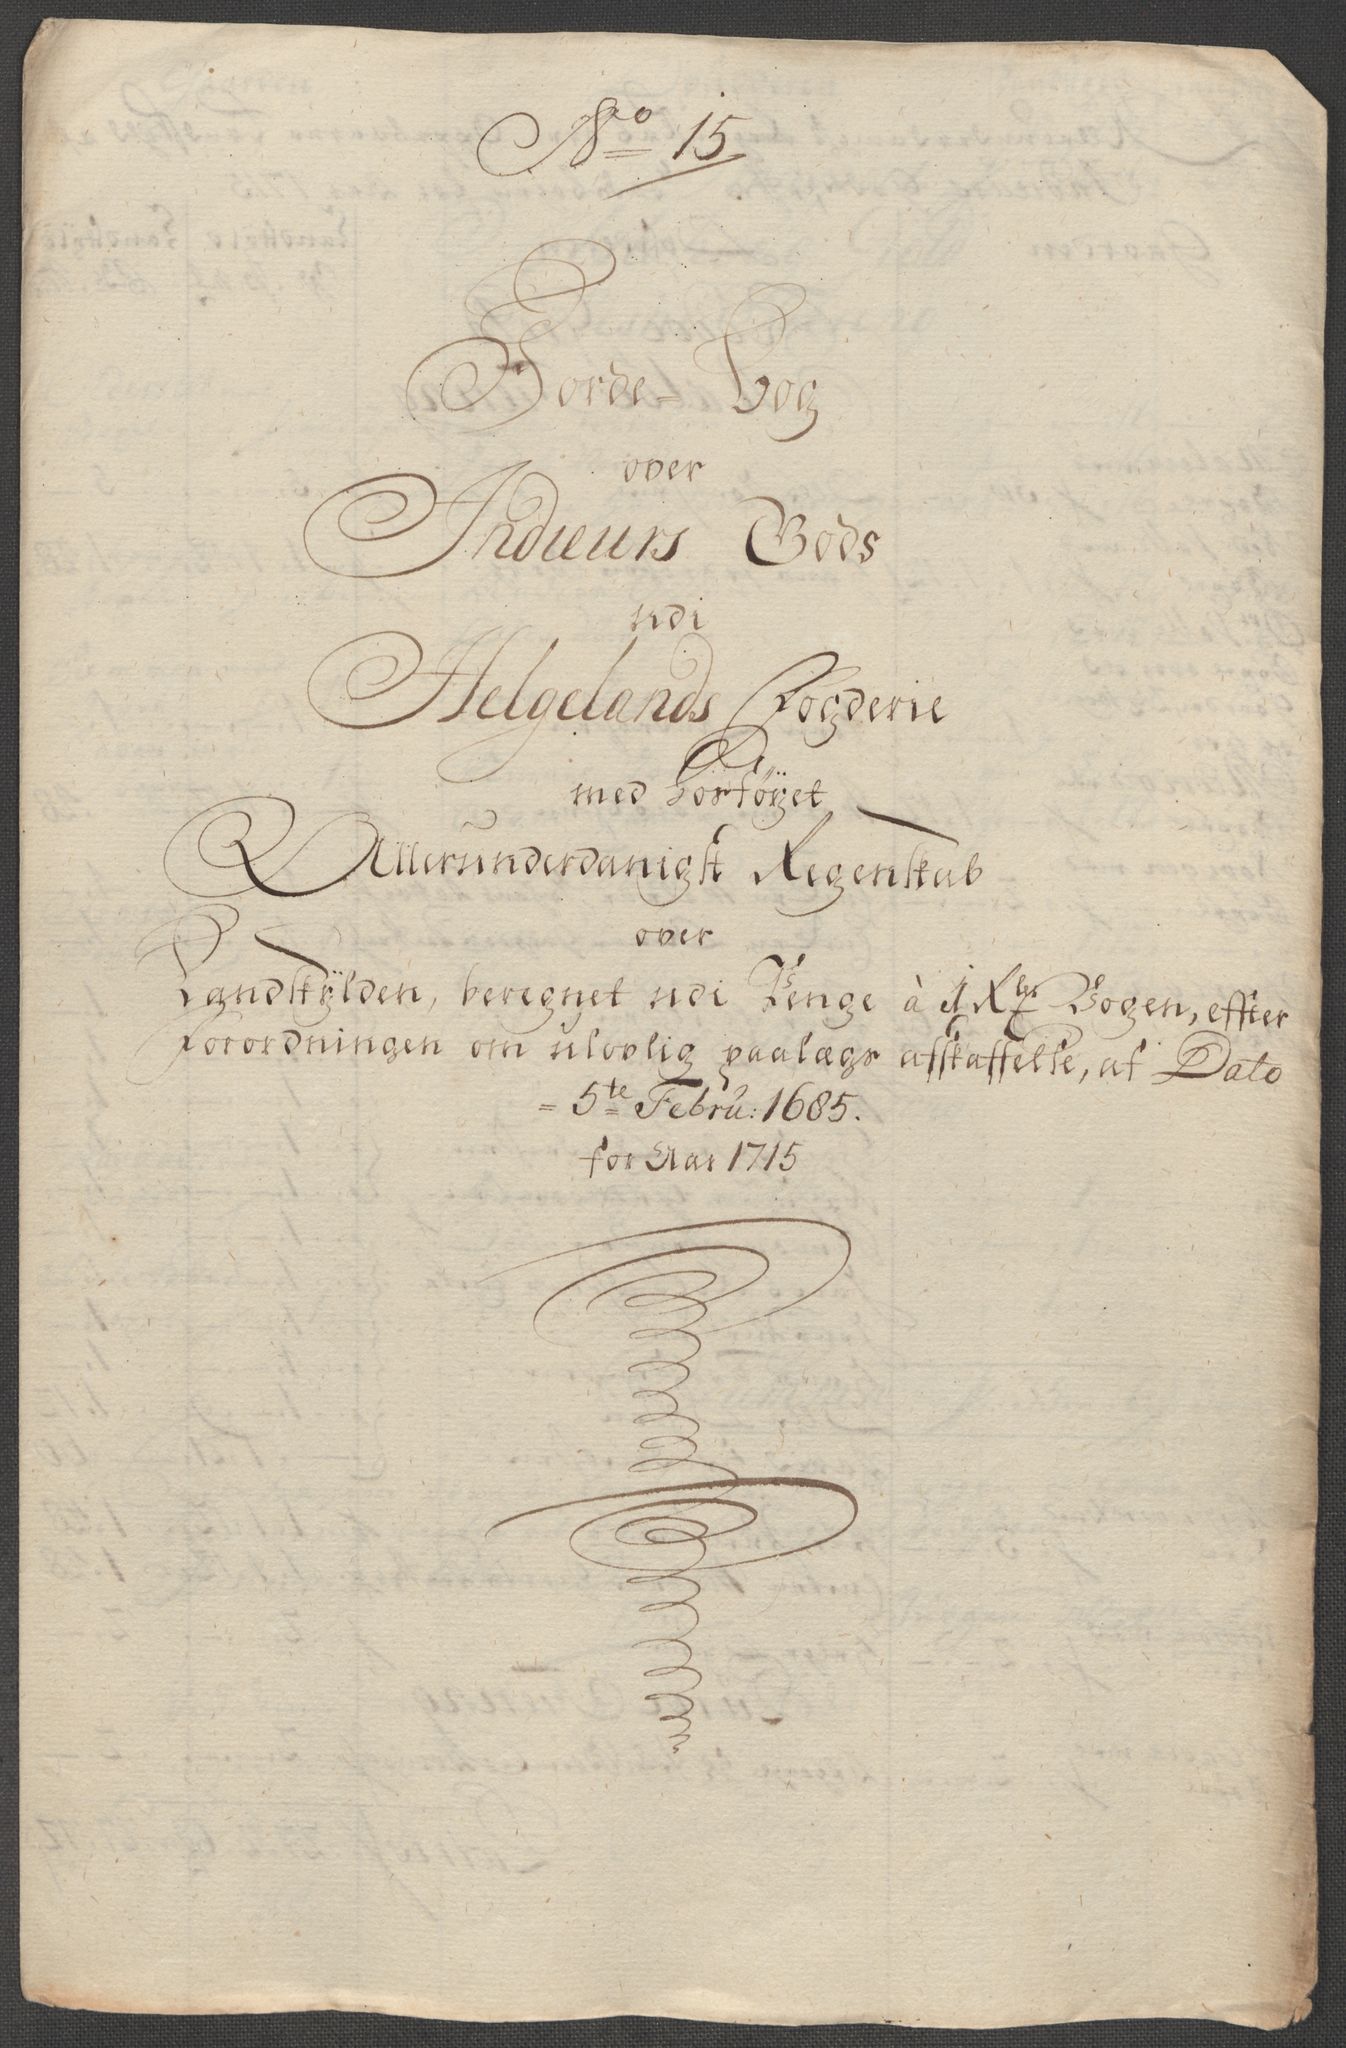 No 15
Jorde-Bog
over
Indieurs Gods
udi
Helgelands Fogderie
med hosföyet
Allerunderdanigst Regenskab
over
Landskÿlden, beregnet udi Penge à 1 Rdr Vogen, effter
Forordningen om ulovlig paalægs afskaffelse, af Dato
= 5te Febru: 1685.
for Aar 1715